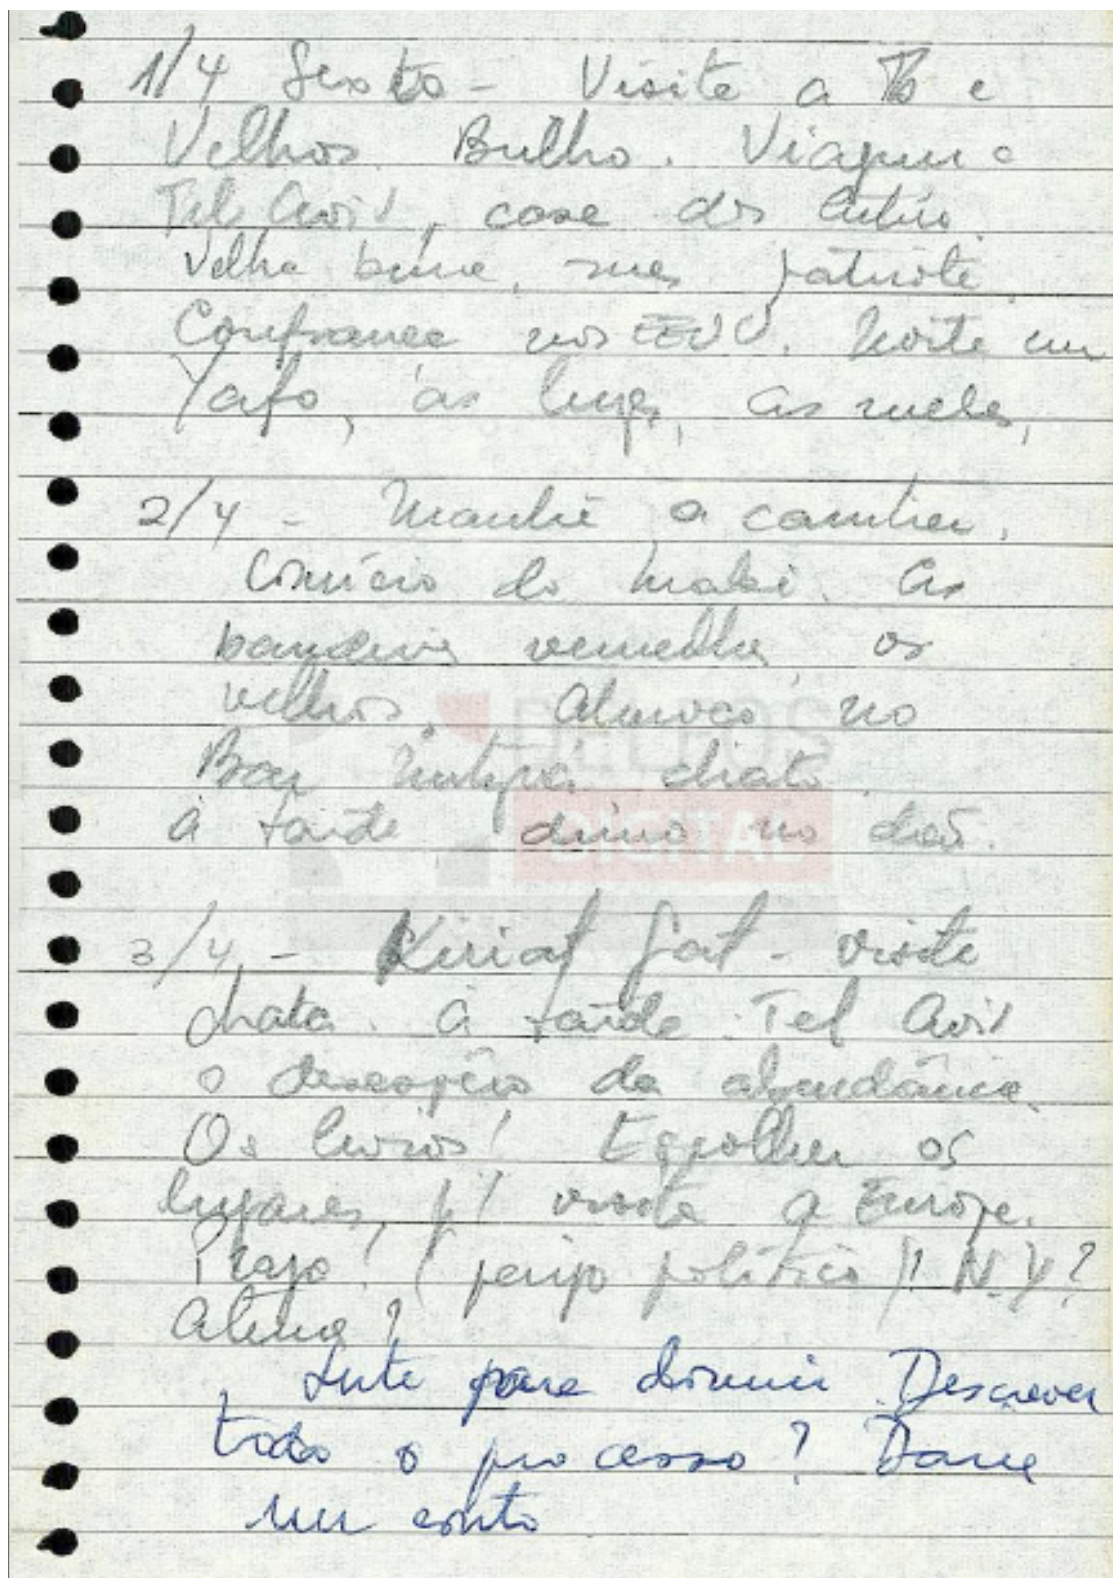 1/4 Sexta - Visita a
Velhos. Bulha. Viagem a
Tel Aviv, casa dos
Velha, mas patriota.
Confiança nos EEUU. Noite em
Yafo, as luzes, as ruelas,
2/4 - Manhã a caminhar.
Comício do Maki. As
bandeiras vermelhas, os
velhos. Almoço no
Bar chato.
À tarde no
3/4 - Kiriat Gat - visita
chata. À tarde Tel Aviv
o desespero da abundância.
Os livros! Escolher os
lugares, p/ visita a Europa.
Praga? (perigo político)! N.Y?
Atenas?
Luta para dormir. Descrever
todo o processo? Daria
um conto
DELFOS
DIGITAL